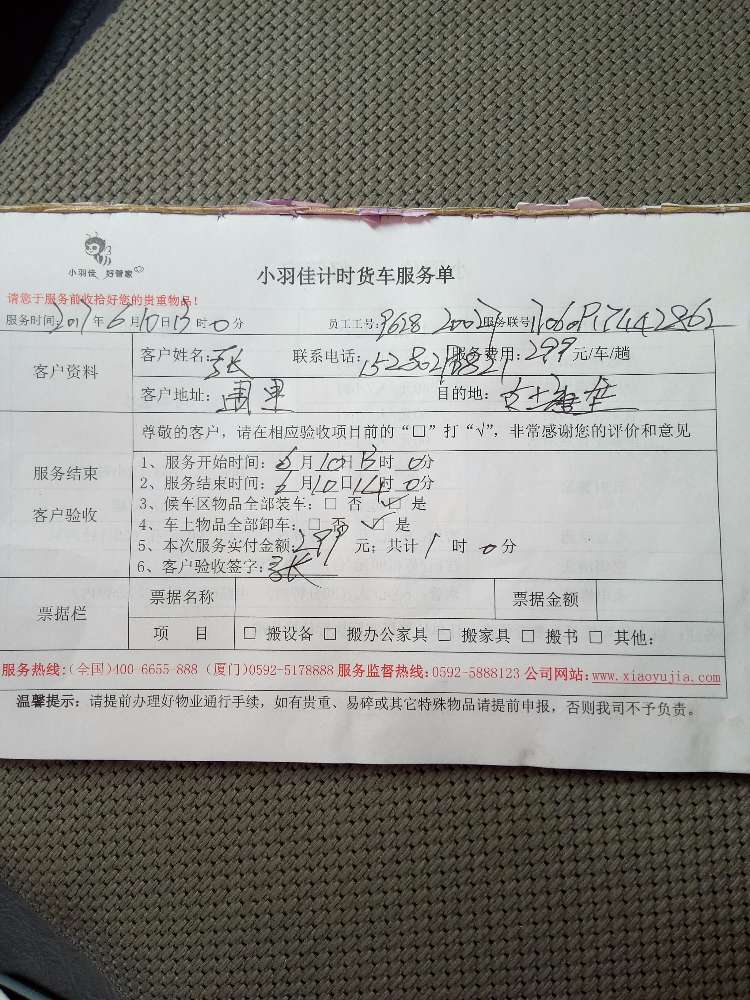 小羽佳 好管家
小羽佳计时货车服务单
请您于服务前收拾好您的贵重物品!
服务时间: 2017年6月10日13时0分 员工工号: 9628 服务联号
客户资料
客户姓名: 张 联系电话: 服务费用: 299元/车/趟
客户地址: 目的地:
服务结束
客户验收
尊敬的客户，请在相应验收项目前的“□”打“√”，非常感谢您的评价和意见
1、服务开始时间: 6月10日13时0分
2、服务结束时间: 6月10日14时0分
3、候车区物品全部装车: □ 否 ☑ 是
4、车上物品全部卸车: □ 否 ☑ 是
5、本次服务实付金额: 299元; 共计1时0分
6、客户验收签字: 张
票据栏
票据名称 票据金额
项 目 □ 搬设备 □ 搬办公家具 □ 搬家具 □ 搬书 □ 其他:
服务热线:(全国)400-6655-888 (厦门)0592-5178888 服务监督热线: 0592-5888123 公司网站: www.xiaoyujia.com
温馨提示: 请提前办理好物业通行手续，如有贵重、易碎或其它特殊物品请提前申报，否则我司不予负责。